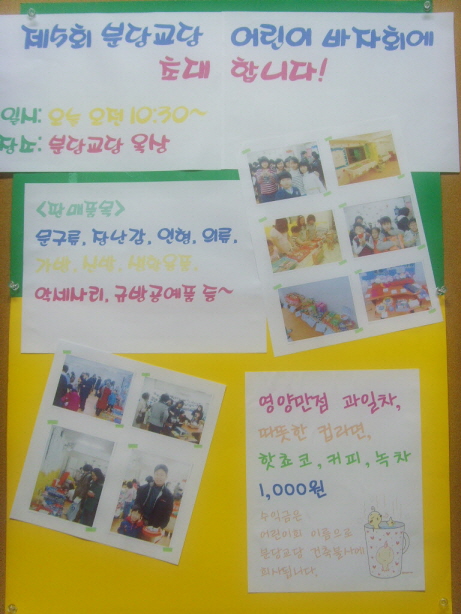 제5회 분당교당 어린이 바자회에
초대 합니다!
일시: 오늘 오전 10:30~
장소: 분당교당 옥상
<판매품목>
문구류, 장난감, 인형, 의류,
가방, 신발, 생활용품,
악세사리, 규방공예품 등~
영양만점 과일차,
따뜻한 컵라면,
핫쵸코, 커피, 녹차
1,000원
수익금은
어린이회 이름으로
분당교당 건축불사에
희사됩니다.